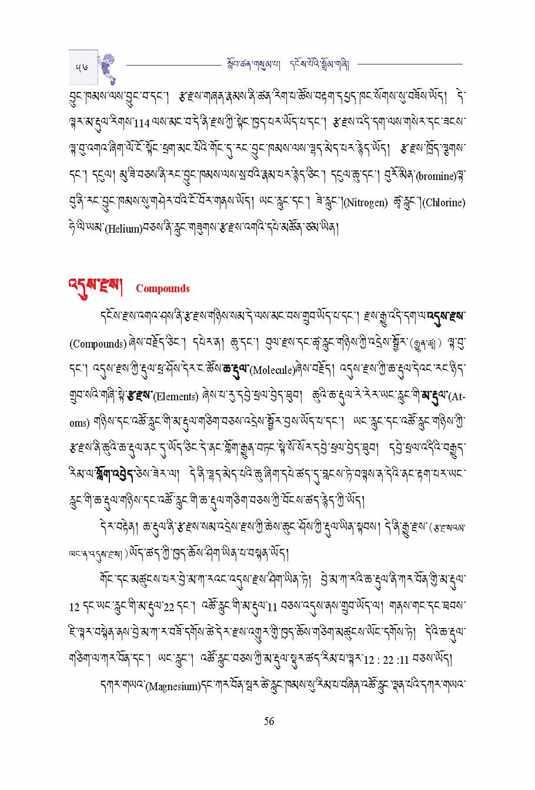 ༥༦
སློབ་ཚན་གསུམ་པ། དངོས་པོའི་སྒྲོམ་གཞི།
བྱུང་ཁམས་ལས་བྱུང་བ་དང་། རྩ་རྫས་གཞན་རྣམས་ནི་ཚན་རིག་པ་ཚོས་བརྟག་དཔྱད་ཁང་སོགས་སུ་བཟོས་ཡོད། དེ་
ལྟར་མ་རྡུལ་རིགས་114 ལས་མང་བ་དེ་ནི་རྫས་ཀྱི་སྟེང་ཁྱད་པར་ཡོད་པ་དང་། རྩ་རྫས་འདི་དག་ལས་གསེར་དང་ཟངས་
ལྟ་བུ་འགའ་ཞིག་ལོ་ངོ་སྟོང་ཕྲག་མང་པོའི་གོང་དུ་རང་བྱུང་ཁམས་ལས་ལྷད་མེད་པར་རྙེད་ཡོད། རྩ་རྫས་ཁྲོད་ལྕགས་
དང་། དངུལ། མུ་ཟི་བཅས་ནི་རང་བྱུང་ཁམས་ལས་སྲ་བའི་རྣམ་པར་རྙེད་ཅིང་། དངུལ་ཆུ་དང་། བྲོ་མིན་(bromine)ལྟ་
བུ་ནི་རང་བྱུང་ཁམས་སུ་གཤེར་བའི་ངོ་བོར་གནས་ཡོད། ཡང་རླུང་དང་། ཟེ་རླུང་།(Nitrogen) ཚྭ་རླུང་།(Chlorine)
ཧེ་ལི་ཡམ་(Helium)བཅས་ནི་རླུང་གཟུགས་རྩ་རྫས་འགའི་དཔེ་མཚོན་ཙམ་ཡིན།
འདུས་རྫས། Compounds
དངོས་རྫས་འགའ་ཤས་ནི་རྩ་རྫས་གཉིས་སམ་དེ་ལས་མང་བས་གྲུབ་ཡོད་པ་དང་། རྫས་རྒྱུ་འདི་དག་ལ་འདུས་རྫས་
(Compounds) ཞེས་བརྗོད་ཅིང་། དཔེར་ན། ཆུ་དང་། བུལ་རྫས་དང་ཚྭ་རླུང་གཉིས་ཀྱི་འདྲེས་སྦྱོར་ ལྟ་བུ་
དང་། འདུས་རྫས་ཀྱི་རྡུལ་ཕྲ་ཤོས་དེར་ང་ཚོས་ཆ་རྡུལ་(Molecule)ཞེས་བརྗོད། འདུས་རྫས་ཀྱི་ཆ་རྡུལ་དེའང་རང་ཉིད་
གྲུབ་སའི་གཞི་སྟེ་རྩ་རྫས་(Elements) ཞེས་པ་རུ་དབྱེ་ཕྲལ་བྱེད་ཐུབ། ཆུའི་ཆ་རྡུལ་རེ་རེར་ཡང་རླུང་གི་མ་རྡུལ་(At-
oms) གཉིས་དང་འཚོ་རླུང་གི་མ་རྡུལ་གཅིག་བཅས་འདྲེས་སྦྱོར་བྱས་ཡོད་པ་དང་། ཡང་རླུང་དང་འཚོ་རླུང་གཉིས་ཀྱི་
རྩ་རྫས་ནི་ཆུའི་ཆ་རྡུལ་ནང་དུ་ཡོད་ཅིང་དེ་ནང་གློག་རྒྱུན་བཏང་སྟེ་སོ་སོར་དབྱེ་ཕྲལ་བྱེད་ཐུབ། དབྱེ་ཕྲལ་འདིའི་བརྒྱུད་
རིམ་ལ་གློག་འབྱེད་ཅེས་ཟེར་ལ། དེ་ནི་ལྷད་མེད་པའི་ཆུ་ཞིག་དཔེ་ཚད་དུ་བླངས་ཏེ་བལྟས་ན་དེའི་ནང་རྟག་པར་ཡང་
རླུང་གི་ཆ་རྡུལ་གཉིས་དང་འཚོ་རླུང་གི་ཆ་རྡུལ་གཅིག་བཅས་ཀྱི་བོངས་ཚད་རྙེད་ཀྱི་ཡོད།
དེར་བརྟེན། ཆ་རྡུལ་ནི་རྩ་རྫས་སམ་འདྲེས་རྫས་ཀྱི་ཆེས་ཆུང་ཤོས་ཀྱི་རྡུལ་ཡིན་སྟབས། དེ་ནི་རྒྱུ་རྫས་ (རྩ་རྫས་འམ་
ཡང་ན་འདུས་རྫས། ) ཡོད་ཚད་ཀྱི་ཁྱད་ཆོས་ཤིག་ཡིན་པ་བསྟན་ཡོད།
གོང་དང་མཚུངས་པར་བྱེ་མ་ཀ་རའང་འདུས་རྫས་ཤིག་ཡིན་ཏེ། བྱེ་མ་ཀ་རའི་ཆ་རྡུལ་ནི་ཀར་བོན་གྱི་མ་རྡུལ་
12 དང་ཡང་རླུང་གི་མ་རྡུལ་22 དང་། འཚོ་རླུང་གི་མ་རྡུལ་11 བཅས་འདུས་ནས་གྲུབ་ཡོད་ལ། གནས་གང་དང་ཐབས་
ཇི་ལྟར་བསྟེན་ནས་བྱེ་མ་ཀ་ར་བཟོ་དགོས་ཚེ་དེར་རྫས་འགྱུར་གྱི་ཁྱད་ཆོས་གཅིག་མཚུངས་ཡོང་དགོས་ཏེ། དེའི་ཆ་རྡུལ་
གཅིག་ལ་ཀར་བོན་དང་། ཡང་རླུང་། འཚོ་རླུང་བཅས་ཀྱི་མ་རྡུལ་སྡུར་ཚད་རིམ་པ་ལྟར་12 : 22 :11 བཅས་ཡོད།
དཀར་གཡའ་(Magnesium)དང་ཀར་བོན་སྦར་ཚེ་རླུང་ཁམས་སུ་རིམ་པ་བཞིན་འཚོ་རླུང་ལྡན་པའི་དཀར་གཡའ་
56